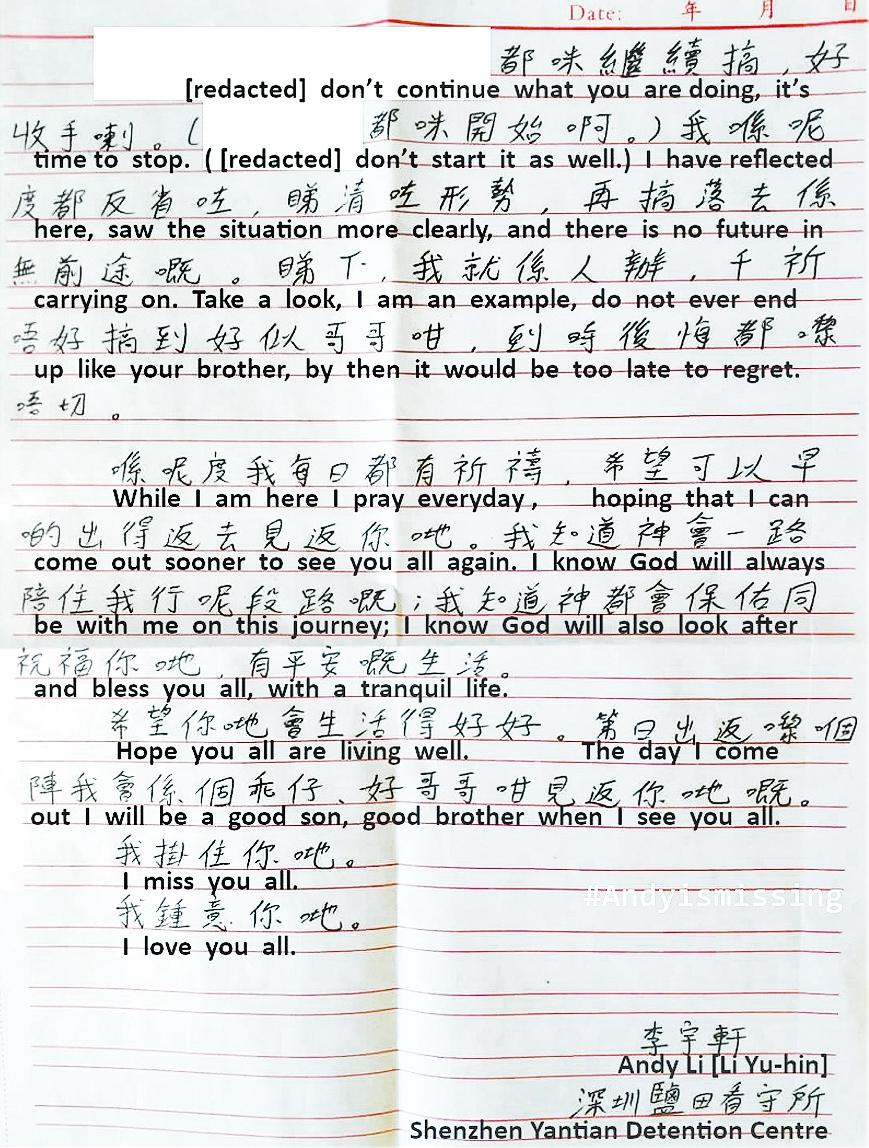 Date: 年 月 日
都咪繼續搞，好
[redacted] don’t continue what you are doing, it’s
收手喇。（ 都咪開始啊。）我喺呢
time to stop. ( [redacted] don’t start it as well.) I have reflected
度都反省咗，睇清咗形勢，再搞落去係
here, saw the situation more clearly, and there is no future in
無前途嘅。睇下，我就係人辦，千祈
carrying on. Take a look, I am an example, do not ever end
唔好搞到好似哥哥咁，到時後悔都嚟
up like your brother, by then it would be too late to regret.
唔切。
喺呢度我每日都有祈禱，希望可以早
While I am here I pray everyday, hoping that I can
啲出得返去見返你哋。我知道神會一路
come out sooner to see you all again. I know God will always
陪住我行呢段路嘅；我知道神都會保佑同
be with me on this journey; I know God will also look after
祝福你哋，有平安嘅生活。
and bless you all, with a tranquil life.
希望你哋會生活得好好。第日出返嚟嗰
Hope you all are living well. The day I come
陣我會係個乖仔、好哥哥咁見返你哋嘅。
out I will be a good son, good brother when I see you all.
我掛住你哋。
I miss you all.
#Andyismissing
我鍾意你哋。
I love you all.
李宇軒
Andy Li [Li Yu-hin]
深圳鹽田看守所
Shenzhen Yantian Detention Centre